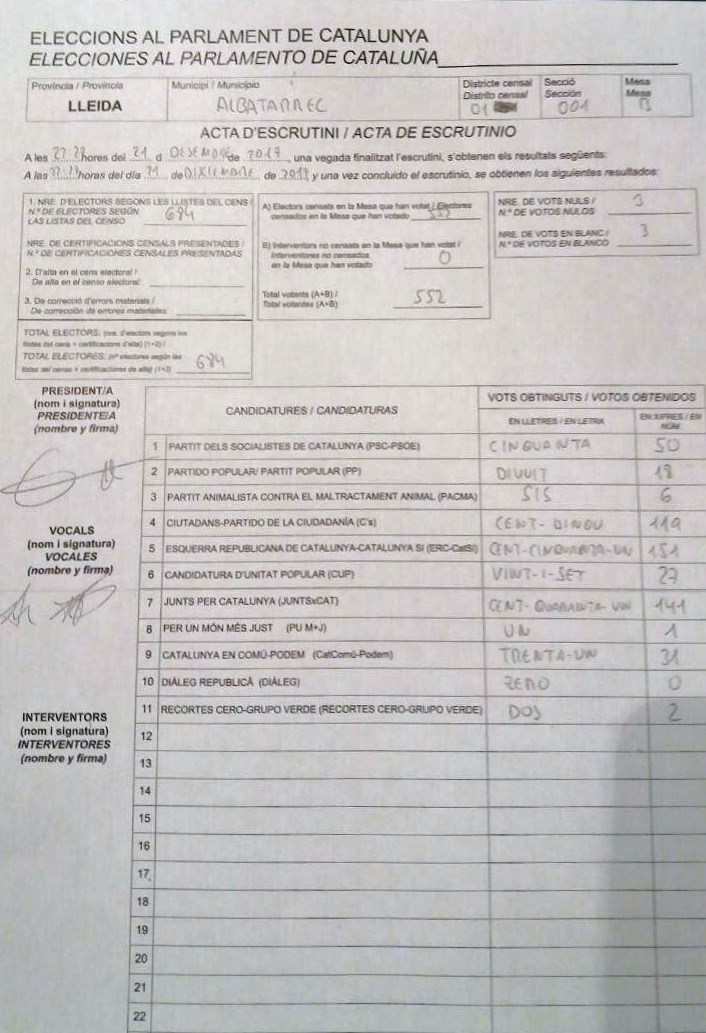 ELECCIONS AL PARLAMENT DE CATALUNYA
ELECCIONES AL PARLAMENTO DE CATALUÑA
Província / Provincia
LLEIDA
Municipi / Municipio
ALBATARREC
Districte censal
Distrito censal
01
Secció
Sección
001
Mesa
Mesa
B
ACTA D'ESCRUTINI / ACTA DE ESCRUTINIO
A les hores del 21 d DESEMBRE de 2017, una vegada finalitzat l'escrutini, s'obtenen els resultats següents:
A las horas del día 21 de DICIEMBRE de 2017 y una vez concluido el escrutinio, se obtienen los siguientes resultados:
1. NRE. D'ELECTORS SEGONS LES LLISTES DEL CENS /
N.º DE ELECTORES SEGÚN
LAS LISTAS DEL CENSO 684
NRE. DE CERTIFICACIONS CENSALS PRESENTADES /
N.º DE CERTIFICACIONES CENSALES PRESENTADAS
2. D'alta en el cens electoral /
De alta en el censo electoral:
3. De correcció d'errors materials /
De corrección de errores materiales:
TOTAL ELECTORS: (nre. d'electors segons les
llistes del cens + certificacions d'alta) (1+2) /
TOTAL ELECTORES: (nº electores según las
listas del censo + certificaciones de alta) (1+2) 684
A) Electors censats en la Mesa que han votat / Electores
censados en la Mesa que han votado 552
B) Interventors no censats en la Mesa que han votat /
Interventores no censados
en la Mesa que han votado 0
Total votants (A+B) /
Total votantes (A+B) 552
NRE. DE VOTS NULS /
N.º DE VOTOS NULOS 3
NRE. DE VOTS EN BLANC /
N.º DE VOTOS EN BLANCO 3
PRESIDENT/A
(nom i signatura)
PRESIDENTE/A
(nombre y firma)
VOCALS
(nom i signatura)
VOCALES
(nombre y firma)
INTERVENTORS
(nom i signatura)
INTERVENTORES
(nombre y firma)
CANDIDATURES / CANDIDATURAS
VOTS OBTINGUTS / VOTOS OBTENIDOS
EN LLETRES / EN LETRA
EN XIFRES / EN
NÚM.
1 PARTIT DELS SOCIALISTES DE CATALUNYA (PSC-PSOE) CINQUANTA 50
2 PARTIDO POPULAR/ PARTIT POPULAR (PP) DIVUIT 18
3 PARTIT ANIMALISTA CONTRA EL MALTRACTAMENT ANIMAL (PACMA) SIS 6
4 CIUTADANS-PARTIDO DE LA CIUDADANÍA (C's) CENT- DINOU 119
5 ESQUERRA REPUBLICANA DE CATALUNYA-CATALUNYA SÍ (ERC-CatSí) CENT-CINQUANTA-UN 151
6 CANDIDATURA D'UNITAT POPULAR (CUP) VINT-I-SET 27
7 JUNTS PER CATALUNYA (JUNTSxCAT) CENT- QUARANTA-UN 141
8 PER UN MÓN MÉS JUST (PU M+J) UN 1
9 CATALUNYA EN COMÚ-PODEM (CatComú-Podem) TRENTA-UN 31
10 DIÀLEG REPUBLICÀ (DIÀLEG) ZERO 0
11 RECORTES CERO-GRUPO VERDE (RECORTES CERO-GRUPO VERDE) DOS 2
12
13
14
15
16
17
18
19
20
21
22